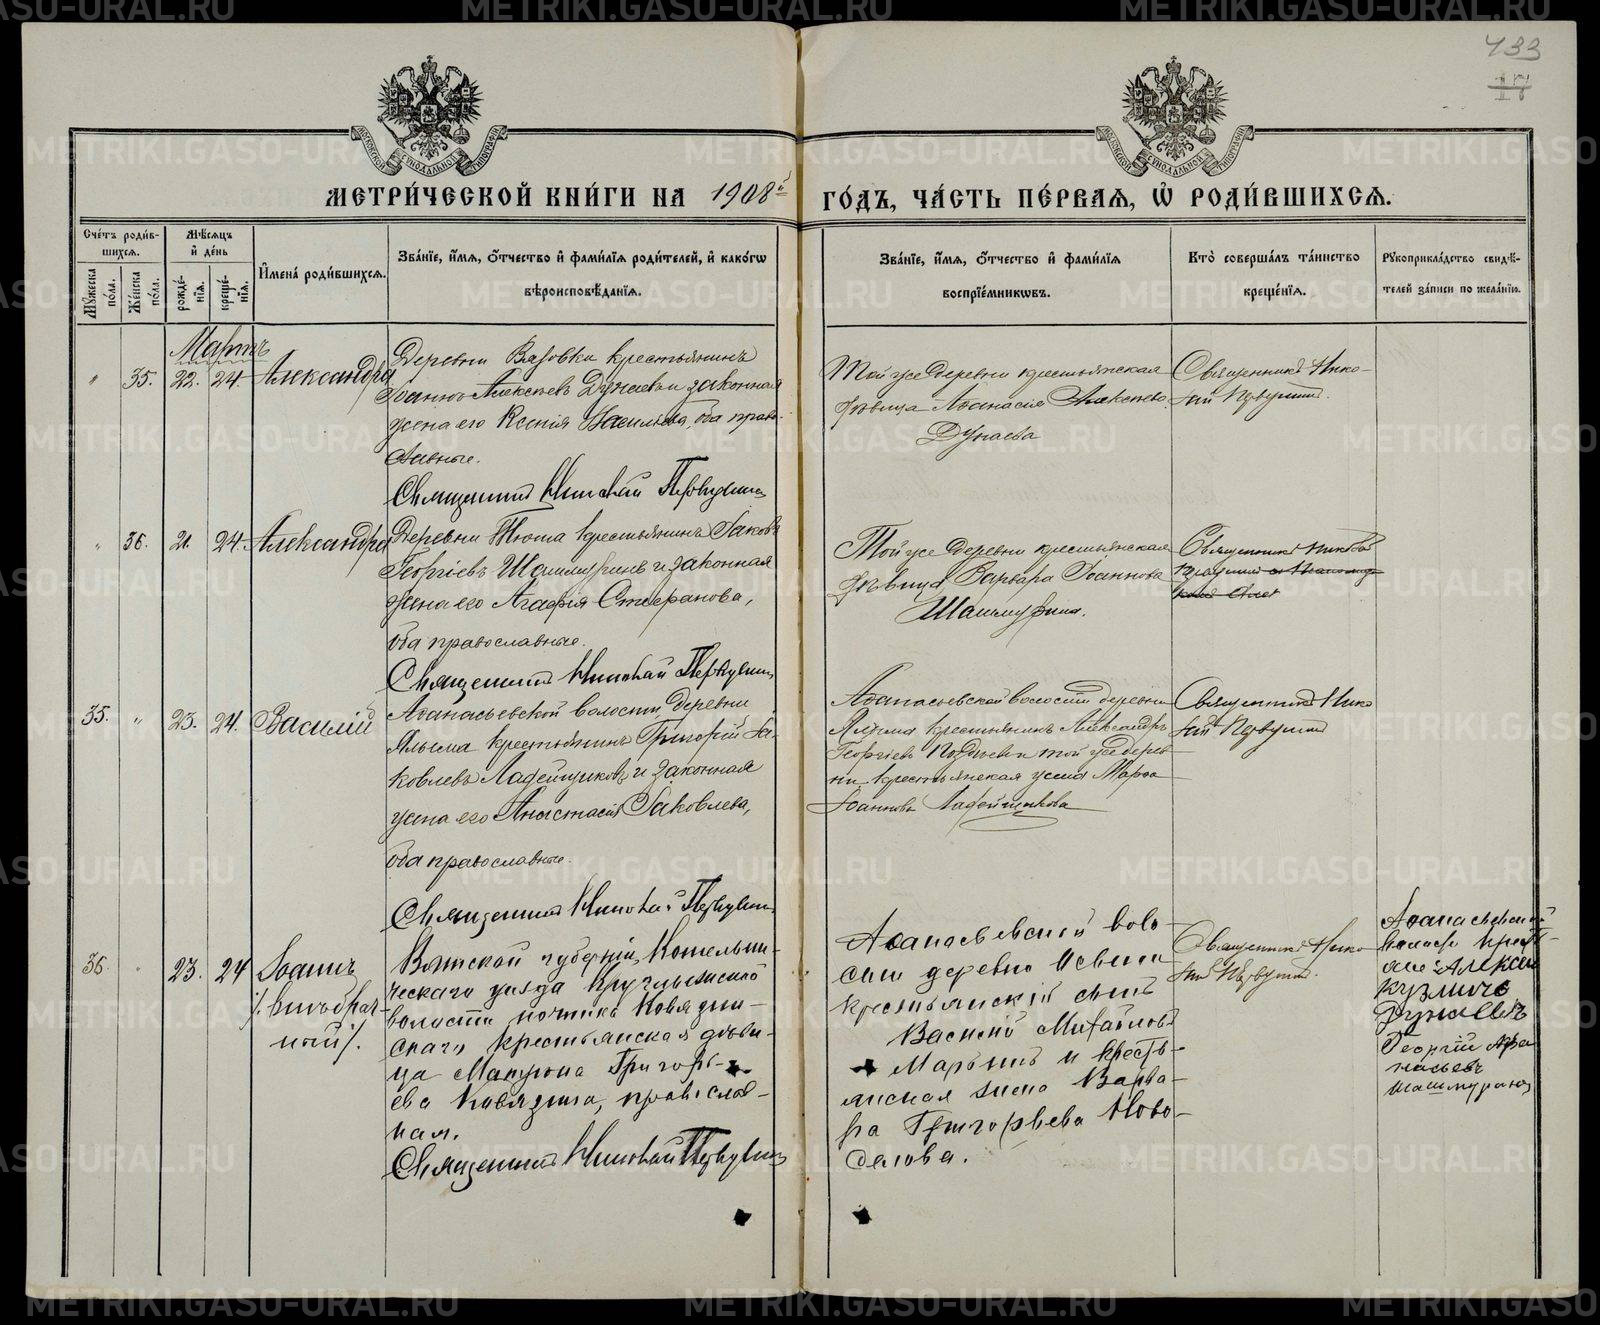 433
17
МЕТРИ́ЧЕСКОЙ КНИ́ГИ НА 1908й ГО́ДЪ, ЧА́СТЬ ПЕ́РВАЯ, Ѡ҆ РОДИ́ВШИХСѦ.
Сче́тъ роди́в-
шихсѧ.
Мꙋ́жеска по́ла.
Же́нска по́ла.
Мѣ́сѧцъ и҆ де́нь
рожде́-
нїѧ.
креще́-
нїѧ.
И҆мена̀ роди́вшихсѧ.
Зва́нїе, и҆́мѧ, ѻ҆́тчество и҆ фами́лїѧ роди́телей, и҆ како́гѡ
вѣроисповѣ́данїѧ.
Зва́нїе, и҆́мѧ, ѻ҆́тчество и҆ фами́лїѧ
воспрїе́мникѡвъ.
Кто̀ соверша́лъ та́инство
креще́нїѧ.
Рꙋкоприкла́дство свидѣ́-
телей за́писи по жела́нїю.
Мартъ
" 35. 22. 24. Александра
Деревни Вязовки крестьянинъ
Іоаннъ Алексѣевъ Дунаевъ и законная
жена его Ксенія Васильева, оба право-
славные.
Священникъ Николай Первушинъ
Той же деревни крестьянская
дѣвица Аѳанасія Алексѣева
Дунаева
Священникъ Нико-
лай Первушинъ.
" 36. 21. 24. Александра
Деревни Тюма крестьянинъ Іаковъ
Георгіевъ Шашмуринъ и законная
жена его Агафія Стефанова,
оба православные.
Священникъ Николай Первушинъ
Той же деревни крестьянская
дѣвица Варвара Іоаннова
Шашмурина.
Священникъ Николай
35. " 23. 24. Василій
Аѳанасьевской волости, деревни
крестьянинъ Григорій Іа-
ковлевъ Ладейщиковъ и законная
жена его Анастасія Іаковлева,
оба православные.
Священникъ Николай Первушинъ
Аѳанасьевской волости деревни
крестьянинъ Александръ
Георгіевъ и той же дерев-
ни крестьянская жена Марѳа
Іоаннова Ладейщикова
Священникъ Нико
лай Первушинъ
36. " 23. 24 Іоаннъ
/: внѣбрач-
ный/.
Вятской губерніи, Котельни-
ческаго уѣзда
волости починка Ковязин-
скаго крестьянская дѣви-
ца Матрона Григорь-
ева Ковязина, православ-
ная.
Священникъ Николай Первушинъ
Аѳанасьевской воло-
сти деревни
крестьянскій сынъ
Василій Михайловъ
Марьинъ и кресть-
янская жена Варва-
ра Григорьева Ново-
селова.
Священникъ Нико-
лай Первушинъ.
Аѳанасьевской
волости
Алексѣй
Кузмичъ
Дунаевъ
Георгій Аѳа
насьевъ
Шашмуринъ